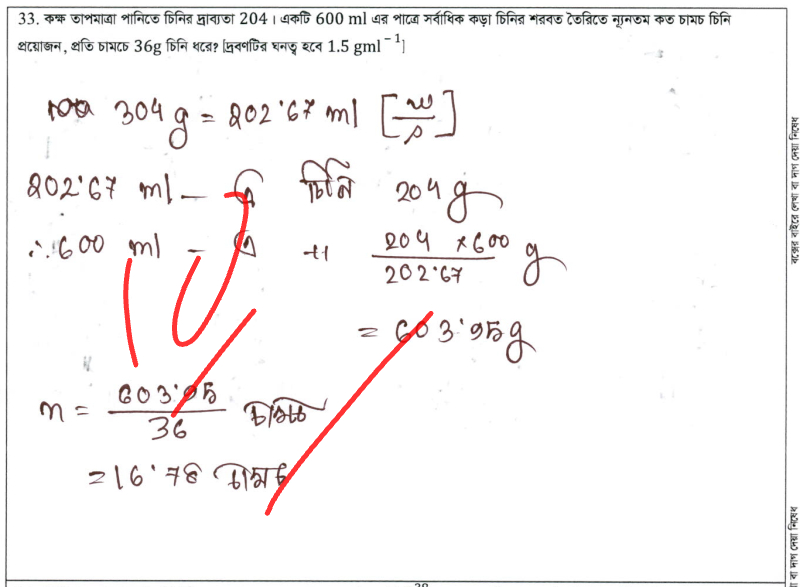 33. কক্ষ তাপমাত্রা পানিতে চিনির দ্রাব্যতা 204। একটি 600 ml এর পাত্রে সর্বাধিক কড়া চিনির শরবত তৈরিতে ন্যূনতম কত চামচ চিনি
প্রয়োজন, প্রতি চামচে 36g চিনি ধরে? [দ্রবণটির ঘনত্ব হবে 1.5 gml⁻¹]
304 g = 202.67 ml [w/ρ]
202.67 ml — এ চিনি 204 g
∴ 600 ml — এ " 204 × 600 / 202.67 g
= 603.95 g
n = 603.95 / 36 চামচ
= 16.78 চামচ
10
বক্সের বাইরে লেখা বা দাগ দেয়া নিষেধ
বা দাগ দেয়া নিষেধ